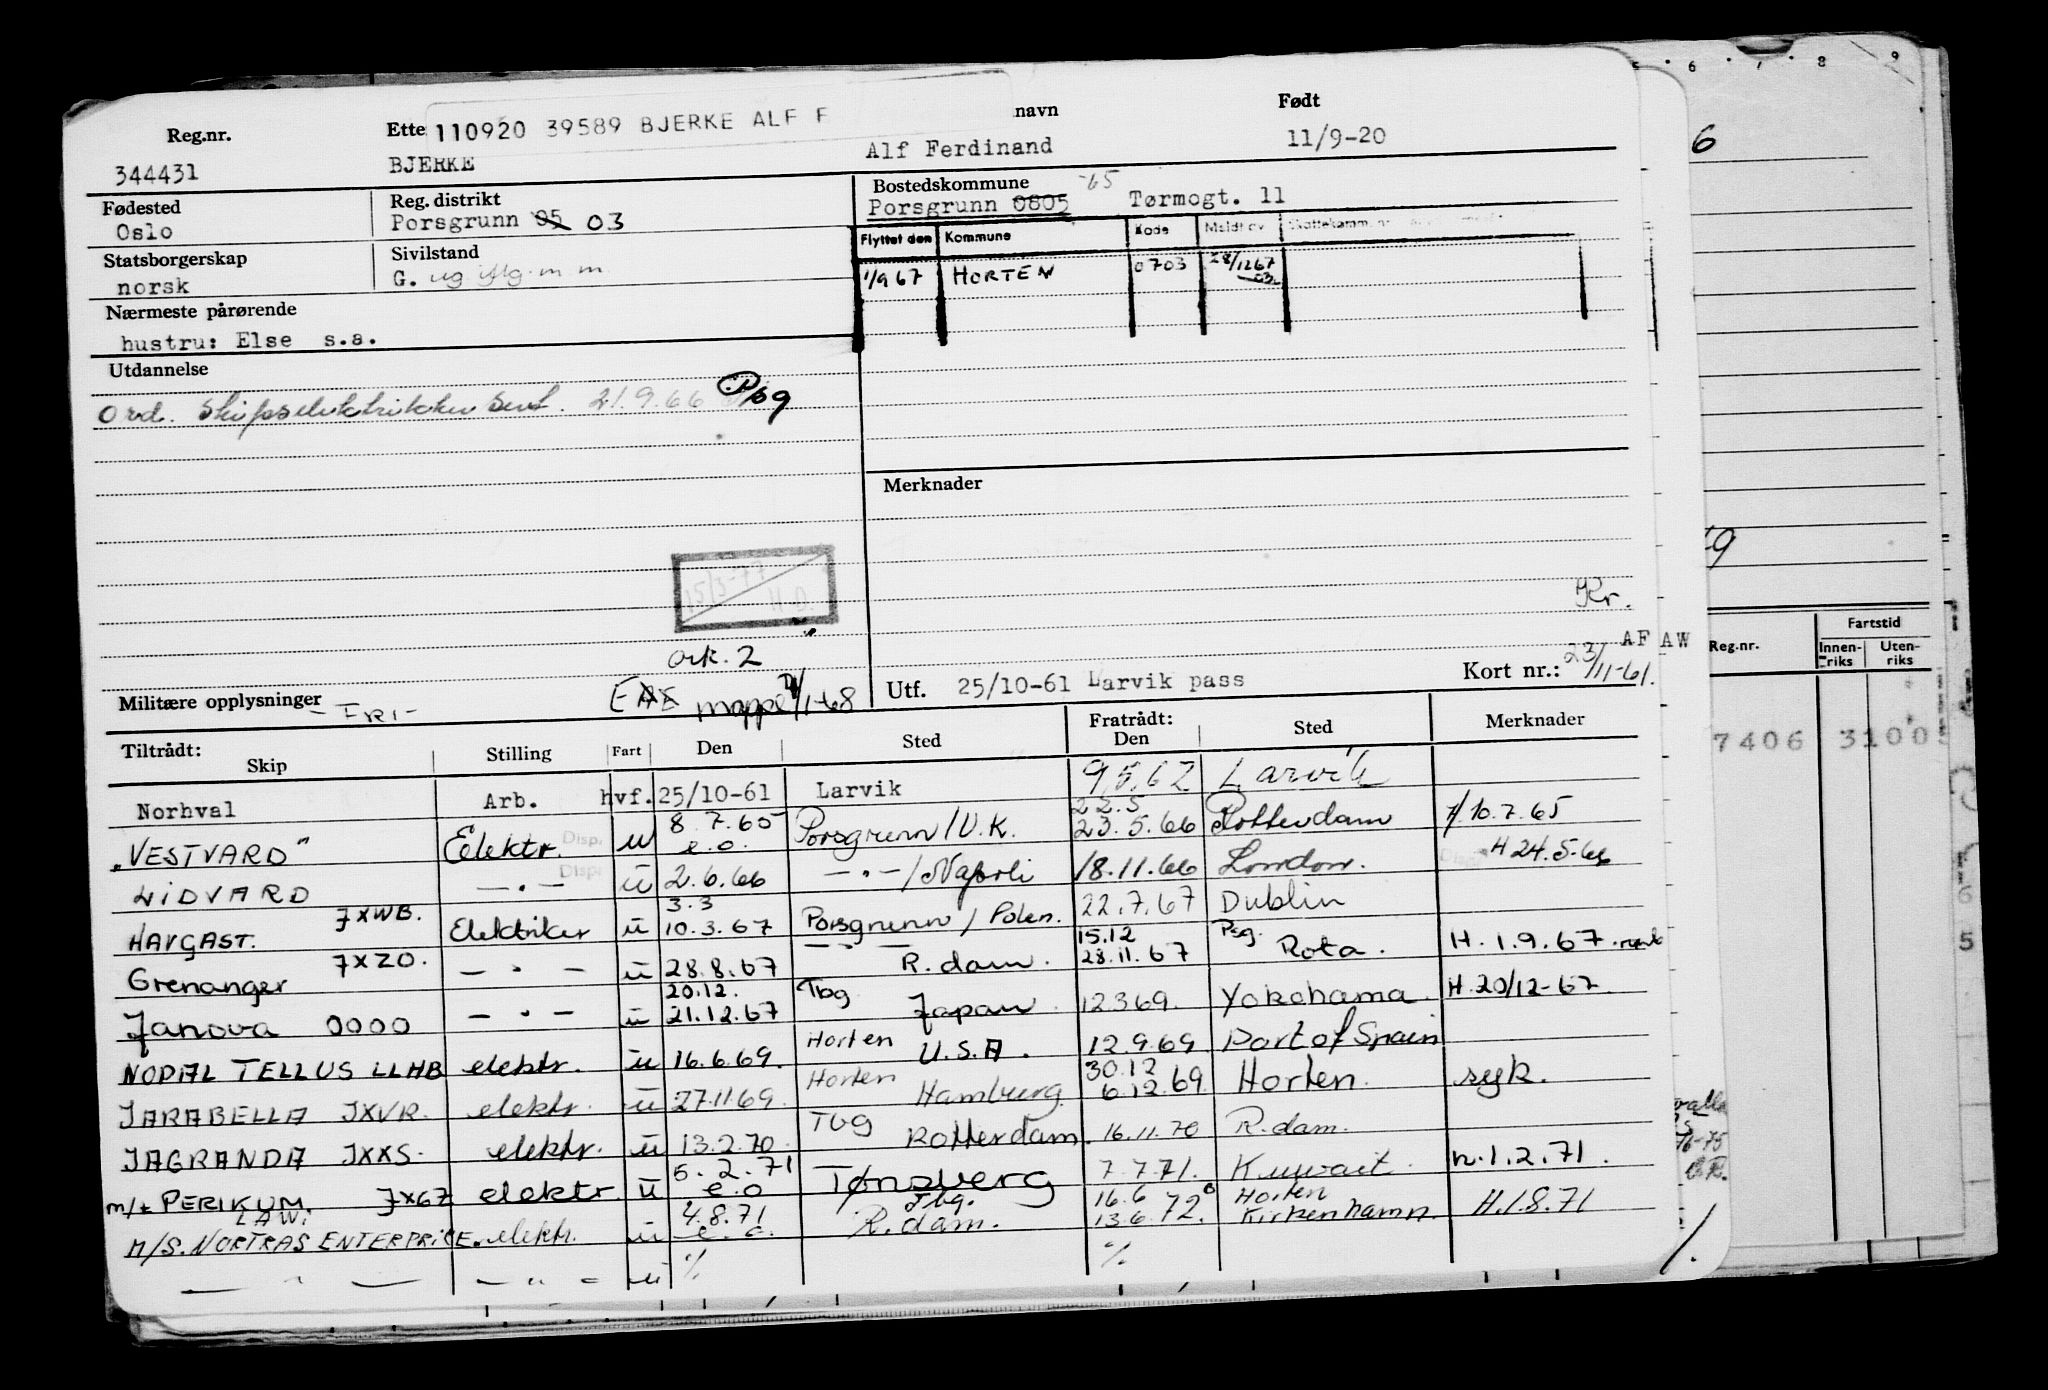 Reg.nr. Ette 110920 39589 BJERKE ALF F navn Født
344431 BJERKE Alf Ferdinand 11/9-20
Fødested Reg. distrikt Bostedskommune -65
Oslo Porsgrunn 05 03 Porsgrunn 0805 Tørmogt. 11
Statsborgerskap Sivilstand Flyttet den Kommune Kode Meldt av
norsk G. ug m m 1/9 67 HORTEN 0703 28/1267
Nærmeste pårørende
hustru: Else s.a.
Utdannelse
Ord. Skipselektriker sert. 21.9.66 Psg
Merknader
15/3-77
H.D.
Kr.
ork. 2 AF AW
Militære opplysninger - FRI - mappe 1-68 Utf. 25/10-61 Larvik pass Kort nr.: 23/11-61.
Tiltrådt: Skip Stilling Fart Den Sted Fratrådt: Den Sted Merknader
Norhval Arb. hvf. 25/10-61 Larvik 9.5.62 Larvik
"VESTVARD" Elektr. Disp. u 8.7.65 e.o. Porsgrunn/U.K. 22.5 23.5.66 Rotterdam 10.7.65
LIDVARD — . — Disp. u 2.6.66 — . — / Napoli 18.11.66 London. H 24.5.66
HAVGAST. JXWB. Elektriker u 3.3 10.3.67 Porsgrunn / Polen. 22.7.67 Dublin
Grenanger JXZO. — . — u 28.8.67 — . — R.dam. 15.12 28.11.67 Psg. Rota. H. 1.9.67.
Janova OOOO — . — u 20.12. 21.12.67 Tbg Japan. 12369. Yokohama. H. 20/12-67.
NOPAL TELLUS LLHB elektr. u 16.6.69. Horten U.S.A. 12.9.69 Port of Spain
JARABELLA JXVR. elektr. u 27.11.69. Horten Hamburg. 30.12 6.12.69 Horten. syk.
JAGRANDA JXXS. elektr. u 13.2.70. Tbg Rotterdam. 16.11.70 R.dam.
m/t PERIKUM. JXGZ elektr. u 5.2.71 e.o Tønsberg 7.7.71. Kuwait. h. 1.2.71.
M/S. NORTRAS ENTERPRISE. LAWI elektr. u 4.8.71 e.o. Tbg. R.dam. 16.6 13.6.72. Horten Kirkenhamn. H. 1.8.71
— " — — " — u % %
6
19
Reg.nr. Fartstid
Innen-riks Uten-riks
7406 3100
76-75
6
5